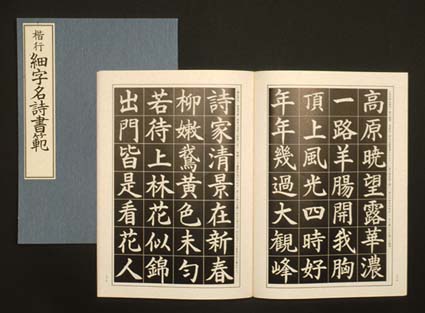 楷行
細字名詩書範
高原暁望露華濃
一路羊腸開我胸
頂上風光四時好
年年幾過大観峰
詩家清景在新春
柳嫩鵞黄色未匀
若待上林花似錦
出門皆是看花人